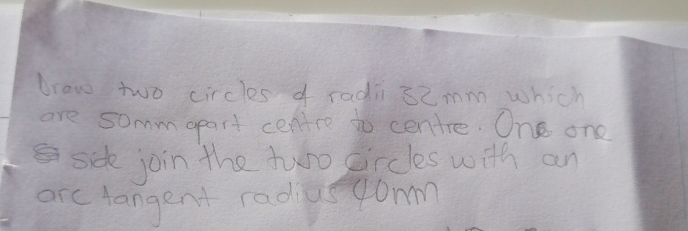 Draw two circles of radii 32mm which
are 50mm apart centre to centre. One one
side join the two circles with an
arc tangent radius 40mm